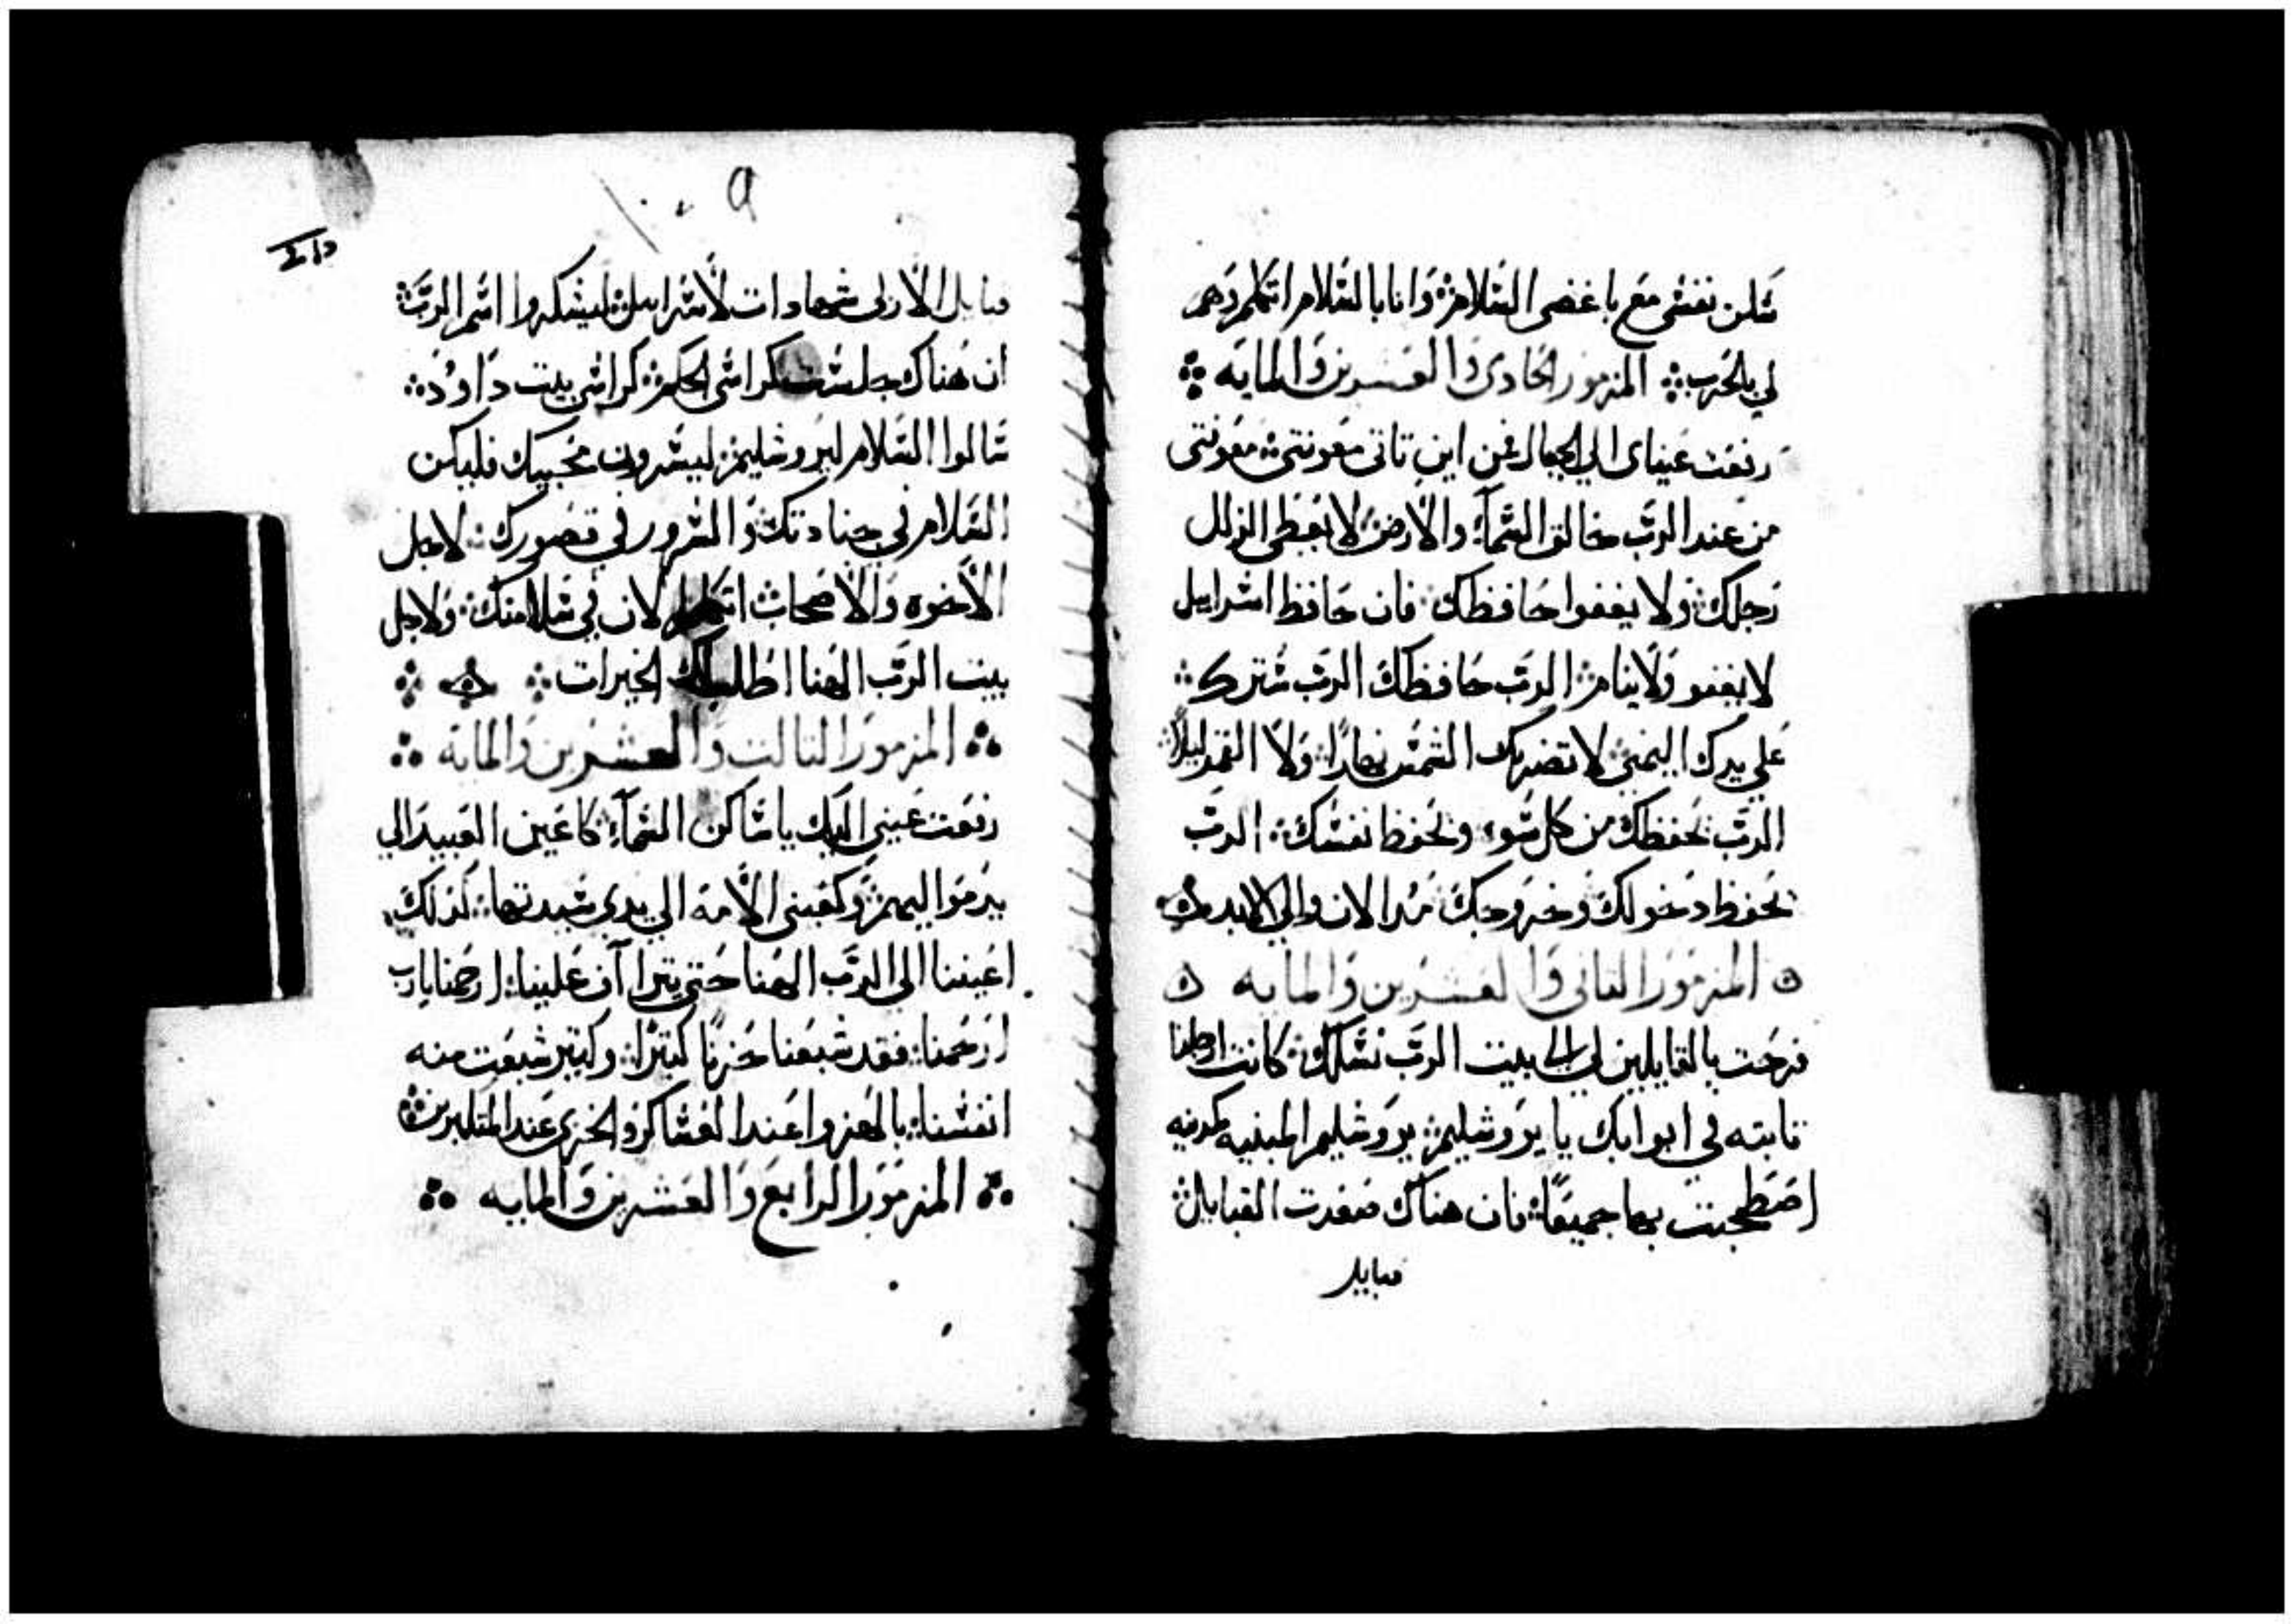 سلن نفسى مع باغضى السلام وانا بالسلام اتكلم وهم
لي بالحرب المزمور الحادى والعشرين والمايه
رفعت عيناى الى الجبال فمن اين تاتى معونتى معونتى
من عند الرب خالق السمآء والارض لا يعطى الزلل
رجلك ولا يغفوا حافظك فان حافظ اسراييل
لا يغفو ولا ينام الرب حافظك الرب سترك
على يدك اليمنى لا تضربك الشمس نهارًا ولا القمر ليلًا
الرب يحفظك من كل سوء ويحفظ نفسك الرب
يحفظ دخولك وخروجك من الان والى الابد
المزمور الثانى والعشرين والمايه
فرحت بالقايلين لي الى بيت الرب نسلك كانت ارجلنا
ثابته في ابوابك يا يروشليم يروشليم المبنيه كمدينه
اصطحبت بها جميعًا فان هناك صعدت القبايل
قبايل
قبايل الارب شهادات لاسراييل ليشكروا اسم الرب
ان هناك جلست كراسى الحكم كراسى بيت داوُد
سالوا السلام ليروشليم ليسرون محبيك فليكن
السلام في جنادتك والسرور في قصورك لاجل
الاخوه والاصحاب اتكلم لان في سلامتك ولاجل
بيت الرب الهنا اطلب لك الخيرات
المزمور الثالث والعشرين والمايه
رفعت عينى اليك يا ساكن السمآء كاعين العبيد الى
يد مواليهم وكعينى الامة الى يدى سيدتها كذلك
اعيننا الى الرب الهنا حتى يتراآف علينا ارحمنا يارب
ارحمنا فقد شبعنا حزنًا كثيرًا وكثير شبعت منه
انفسنا بالهزوا عند العساكر والخزى عند المتكبرين
المزمور الرابع والعشرين والمايه